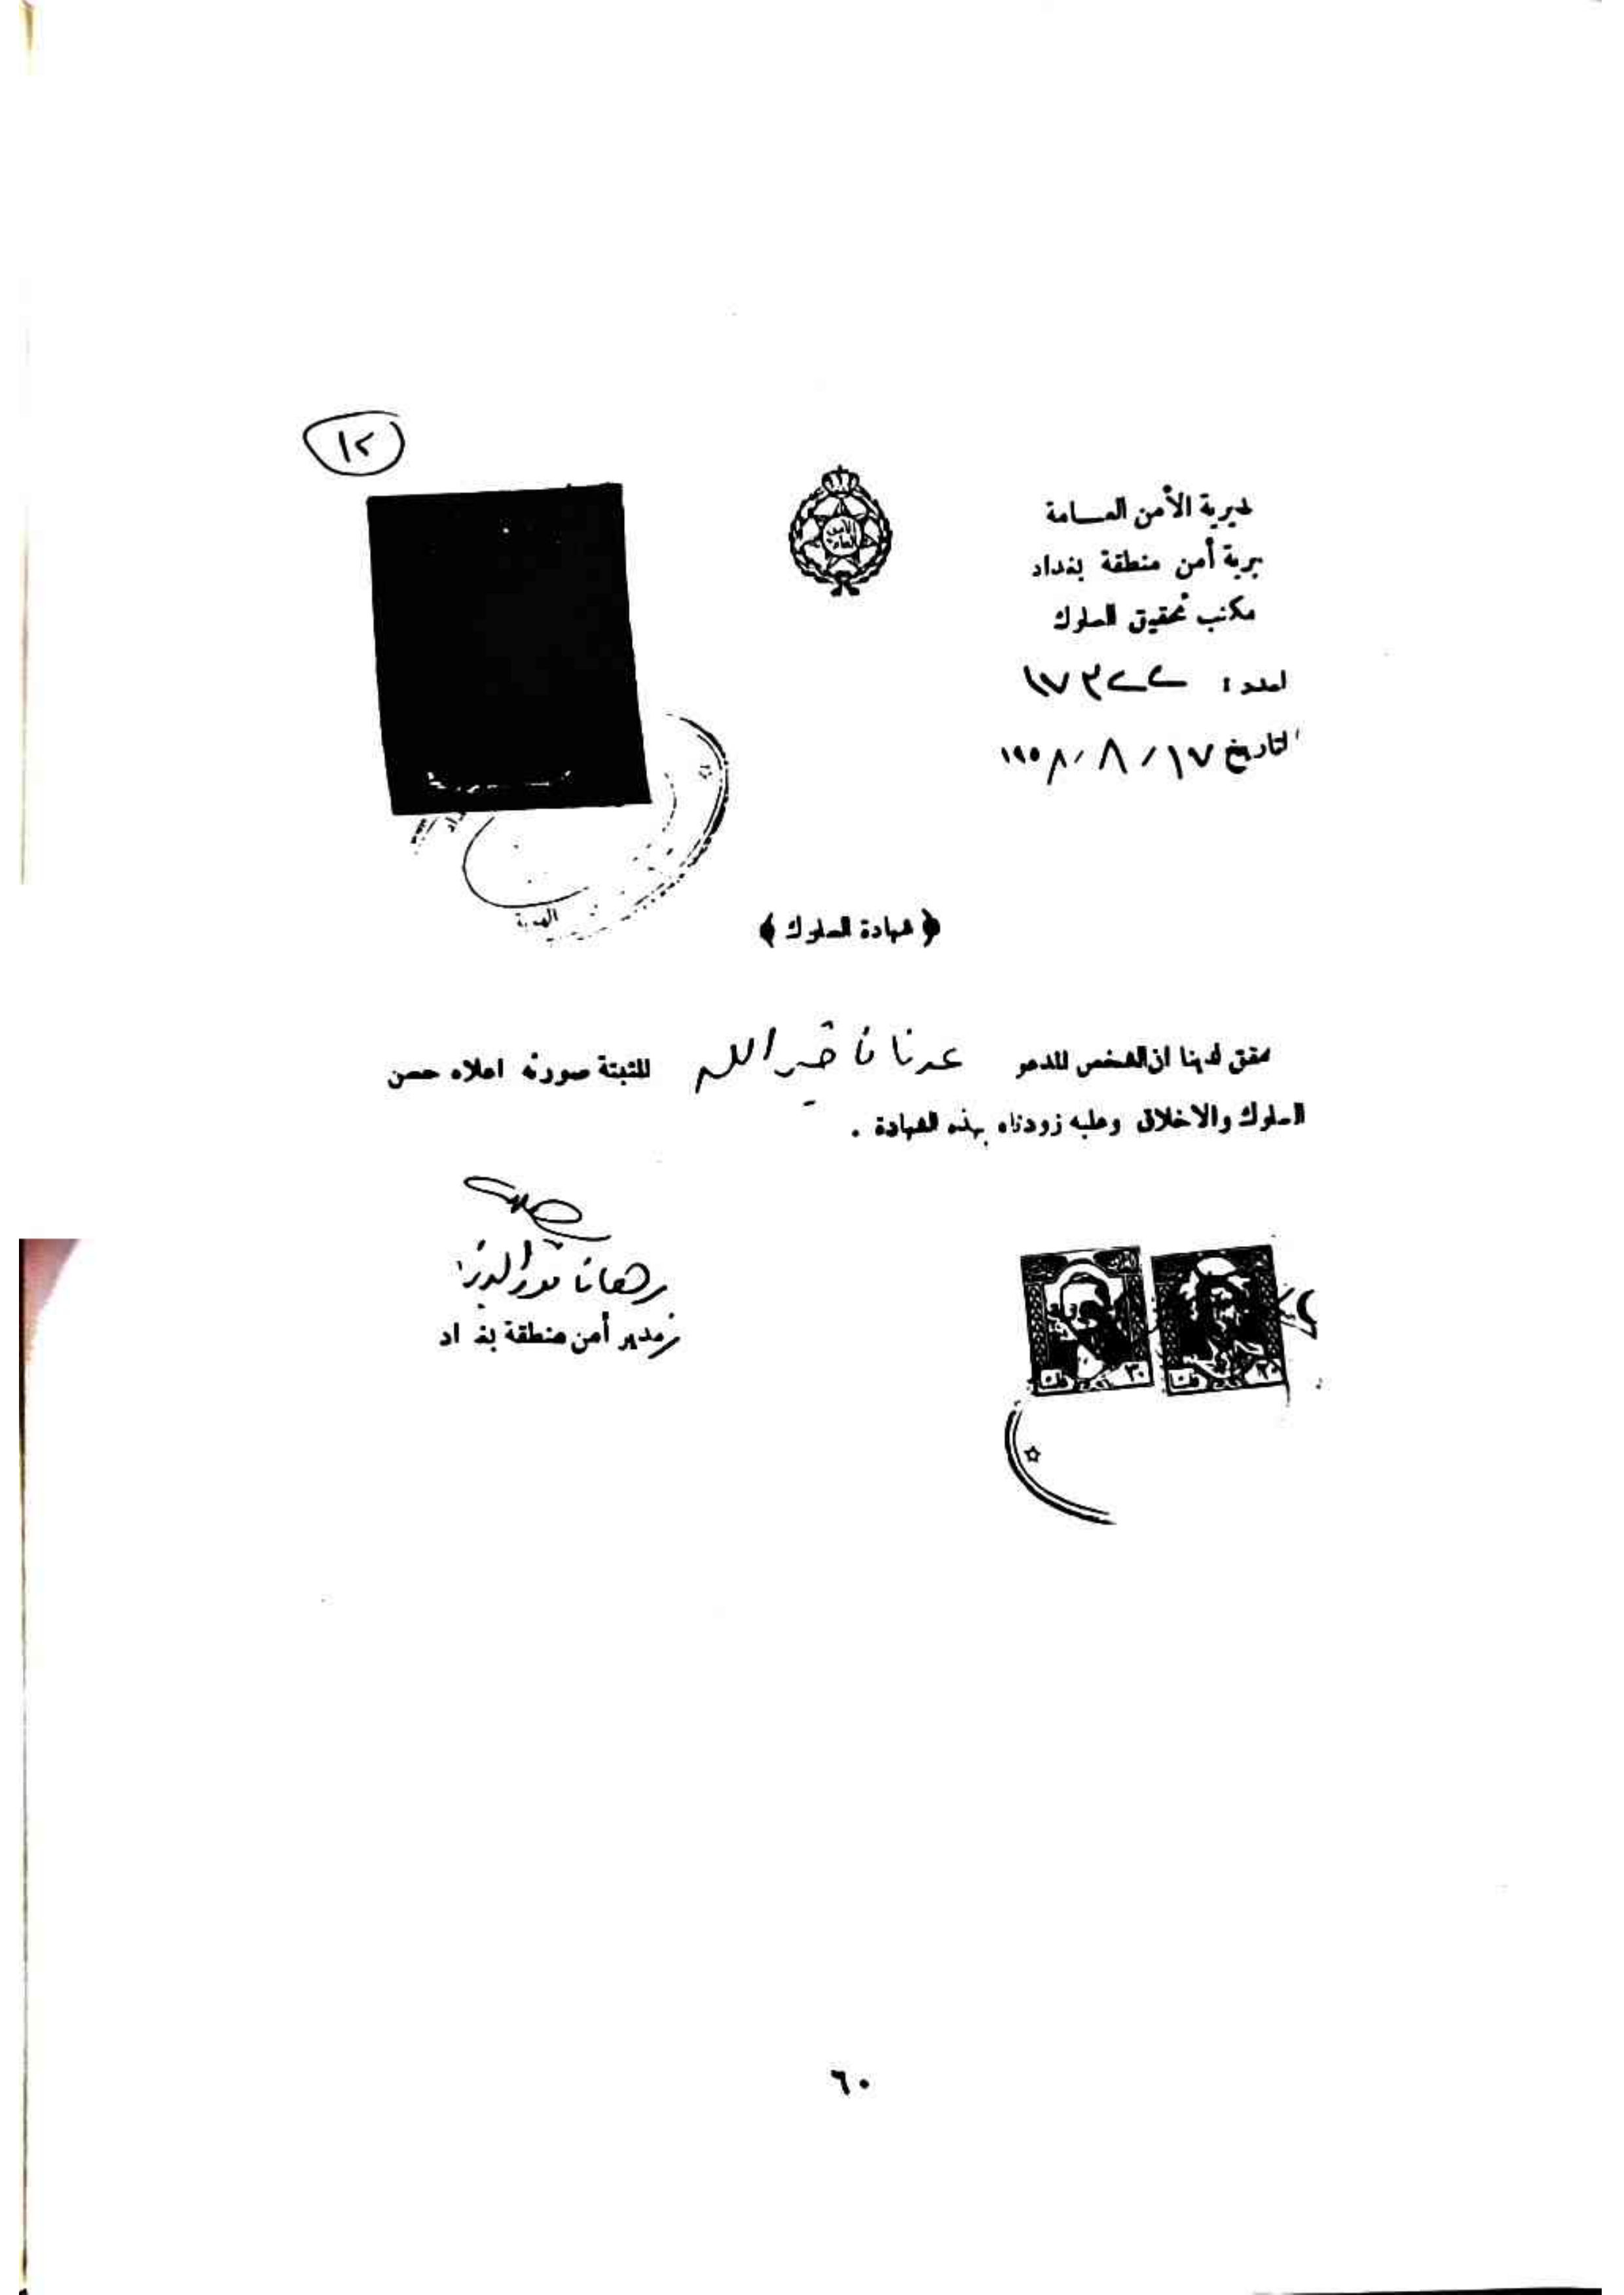 ١٢
مديرية الأمن العـــامة
مديرية أمن منطقة بغداد
مكتب تحقيق السلوك
الأمن العامة
العدد : ١٧٣٢٢
التاريخ ١٧ / ٨ / ١٩٥٨
( شهادة السلوك )
تحقق لدينا ان الشخص المدعو عدنان خير الله المثبتة صورته اعلاه حسن
السلوك والاخلاق وعليه زودناه بهذه الشهادة .
نور الدين
مدير أمن منطقة بغداد
٣٠
٦٠